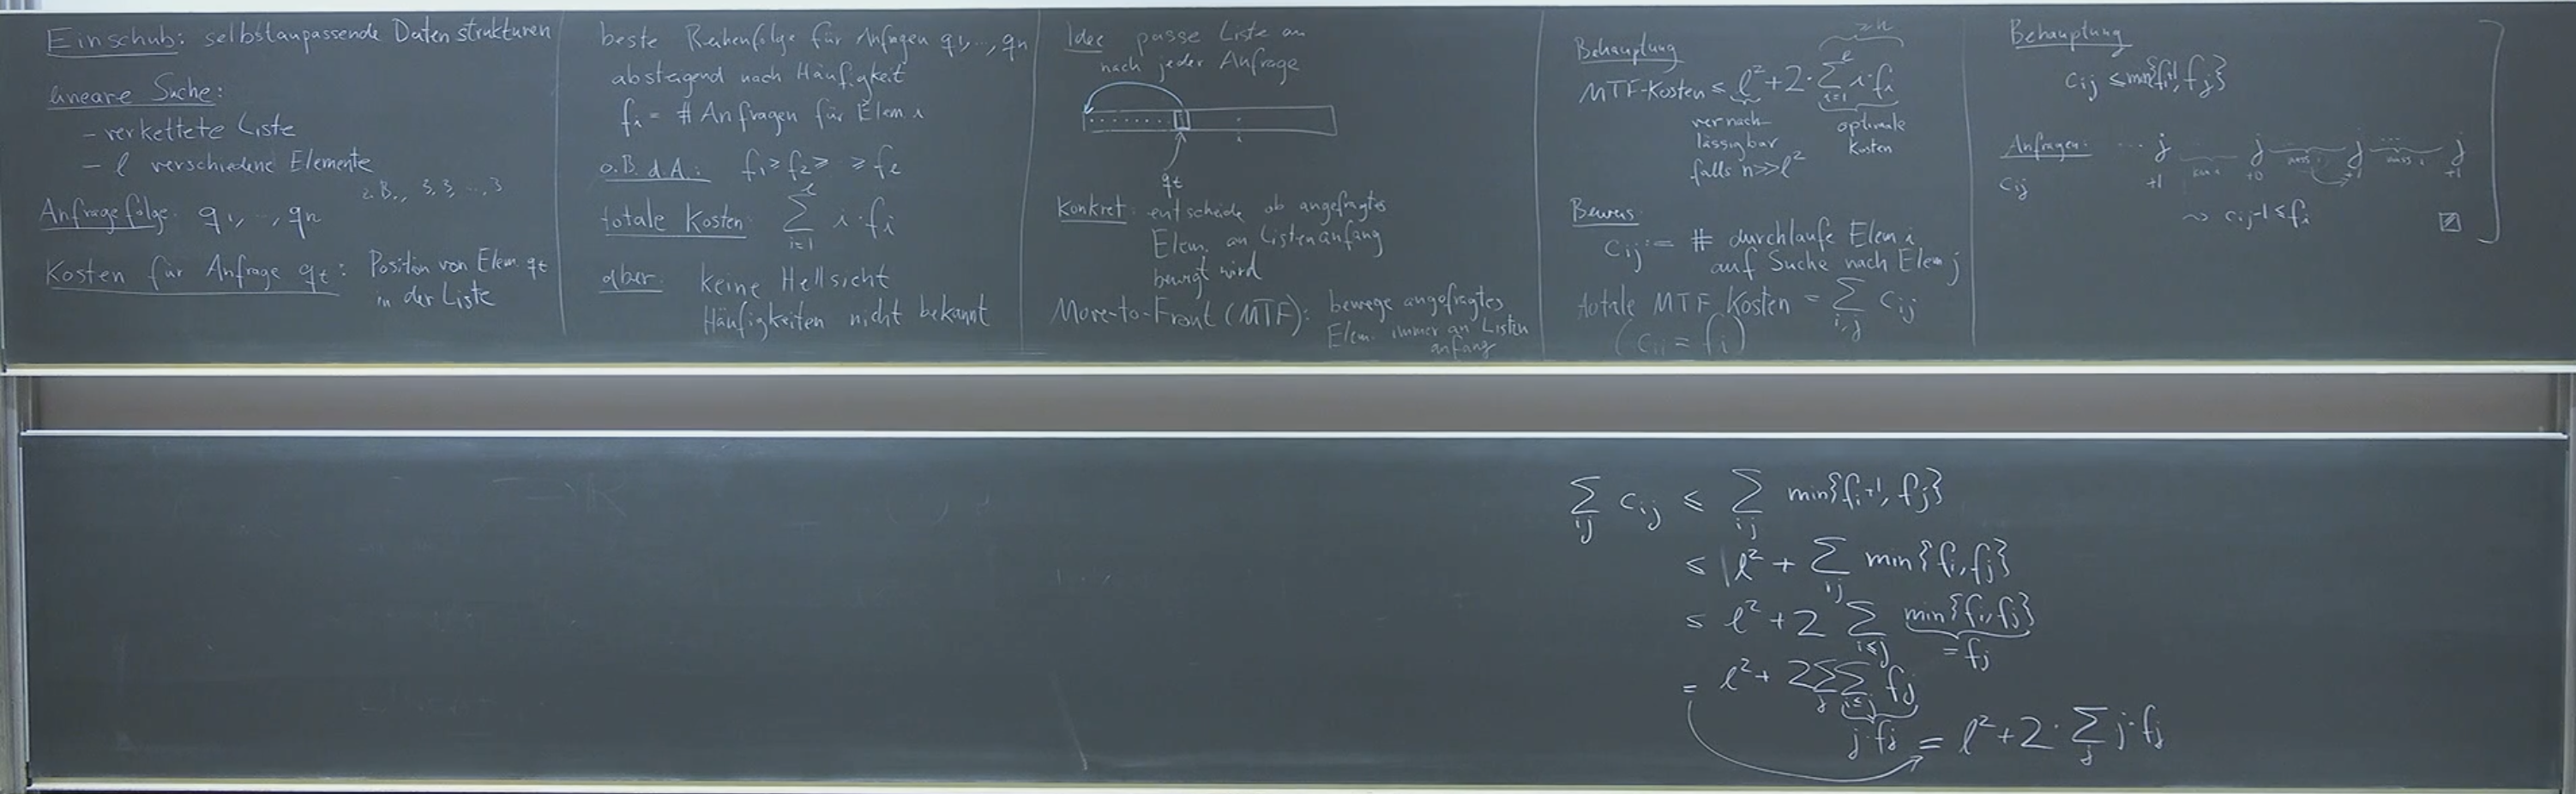 Einschub: selbstanpassende Datenstrukturen
lineare Suche:
- verkettete Liste
- l verschiedene Elemente
z.B., 3,3, ..., 3
Anfragefolge: q₁, ..., qₙ
Kosten für Anfrage qₜ: Position von Elem. qₜ
in der Liste
beste Reihenfolge für Anfragen q₁, ..., qₙ
absteigend nach Häufigkeit
fᵢ = # Anfragen für Elem. i
o.B.d.A.: f₁ ≥ f₂ ≥ ≥ fₗ
totale Kosten: ∑ᵢ₌₁ˡ i · fᵢ
aber: keine Hellsicht
Häufigkeiten nicht bekannt
Idee passe Liste an
nach jeder Anfrage
i
qₜ
Konkret: entscheide ob angefragtes
Elem. an Listenanfang
bewegt wird
Move-to-Front (MTF): bewege angefragtes
Elem. immer an Listen
anfang
Behauptung
≥ n
MTF-Kosten ≤ l² + 2 · ∑ᵢ₌₁ˡ i · fᵢ
vernach
lässigbar
falls n >> l²
optimale
Kosten
Beweis:
Cᵢⱼ := # durchlaufe Elem i
auf Suche nach Elem j
totale MTF Kosten = ∑ᵢ,ⱼ Cᵢⱼ
(Cᵢᵢ = fᵢ)
Behauptung
Cᵢⱼ ≤ min{fᵢ+1, fⱼ}
Anfragen: ... j ... j ... j ... j
Cᵢⱼ +1 +0 +1 +1
⇝ Cᵢⱼ-1 ≤ fᵢ
∑ᵢⱼ Cᵢⱼ ≤ ∑ᵢⱼ min{fᵢ+1, fⱼ}
≤ l² + ∑ᵢⱼ min{fᵢ, fⱼ}
≤ l² + 2 ∑ᵢ≤ⱼ min{fᵢ, fⱼ}
= fⱼ
= l² + 2 ∑ⱼ ∑ᵢ≤ⱼ fⱼ
j · fⱼ = l² + 2 · ∑ⱼ j · fⱼ